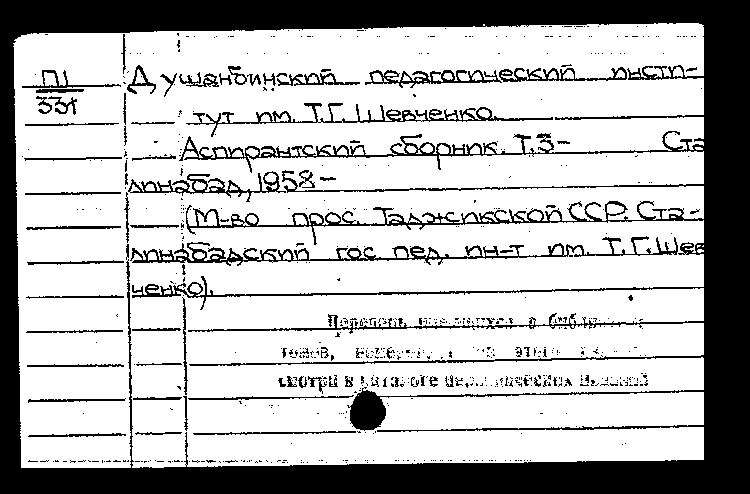 П1
331
Душанбинский педагогический инсти-
тут им. Т.Г. Шевченко.
Аспирантский сборник. Т.3- Ста
линабад, 1958-
(М-во прос. Таджикской ССР. Ста-
линабадский гос. пед. ин-т им. Т.Г. Шев
ченко).
Перечень имеющихся в
томов,
смотри в каталоге периодических изданий